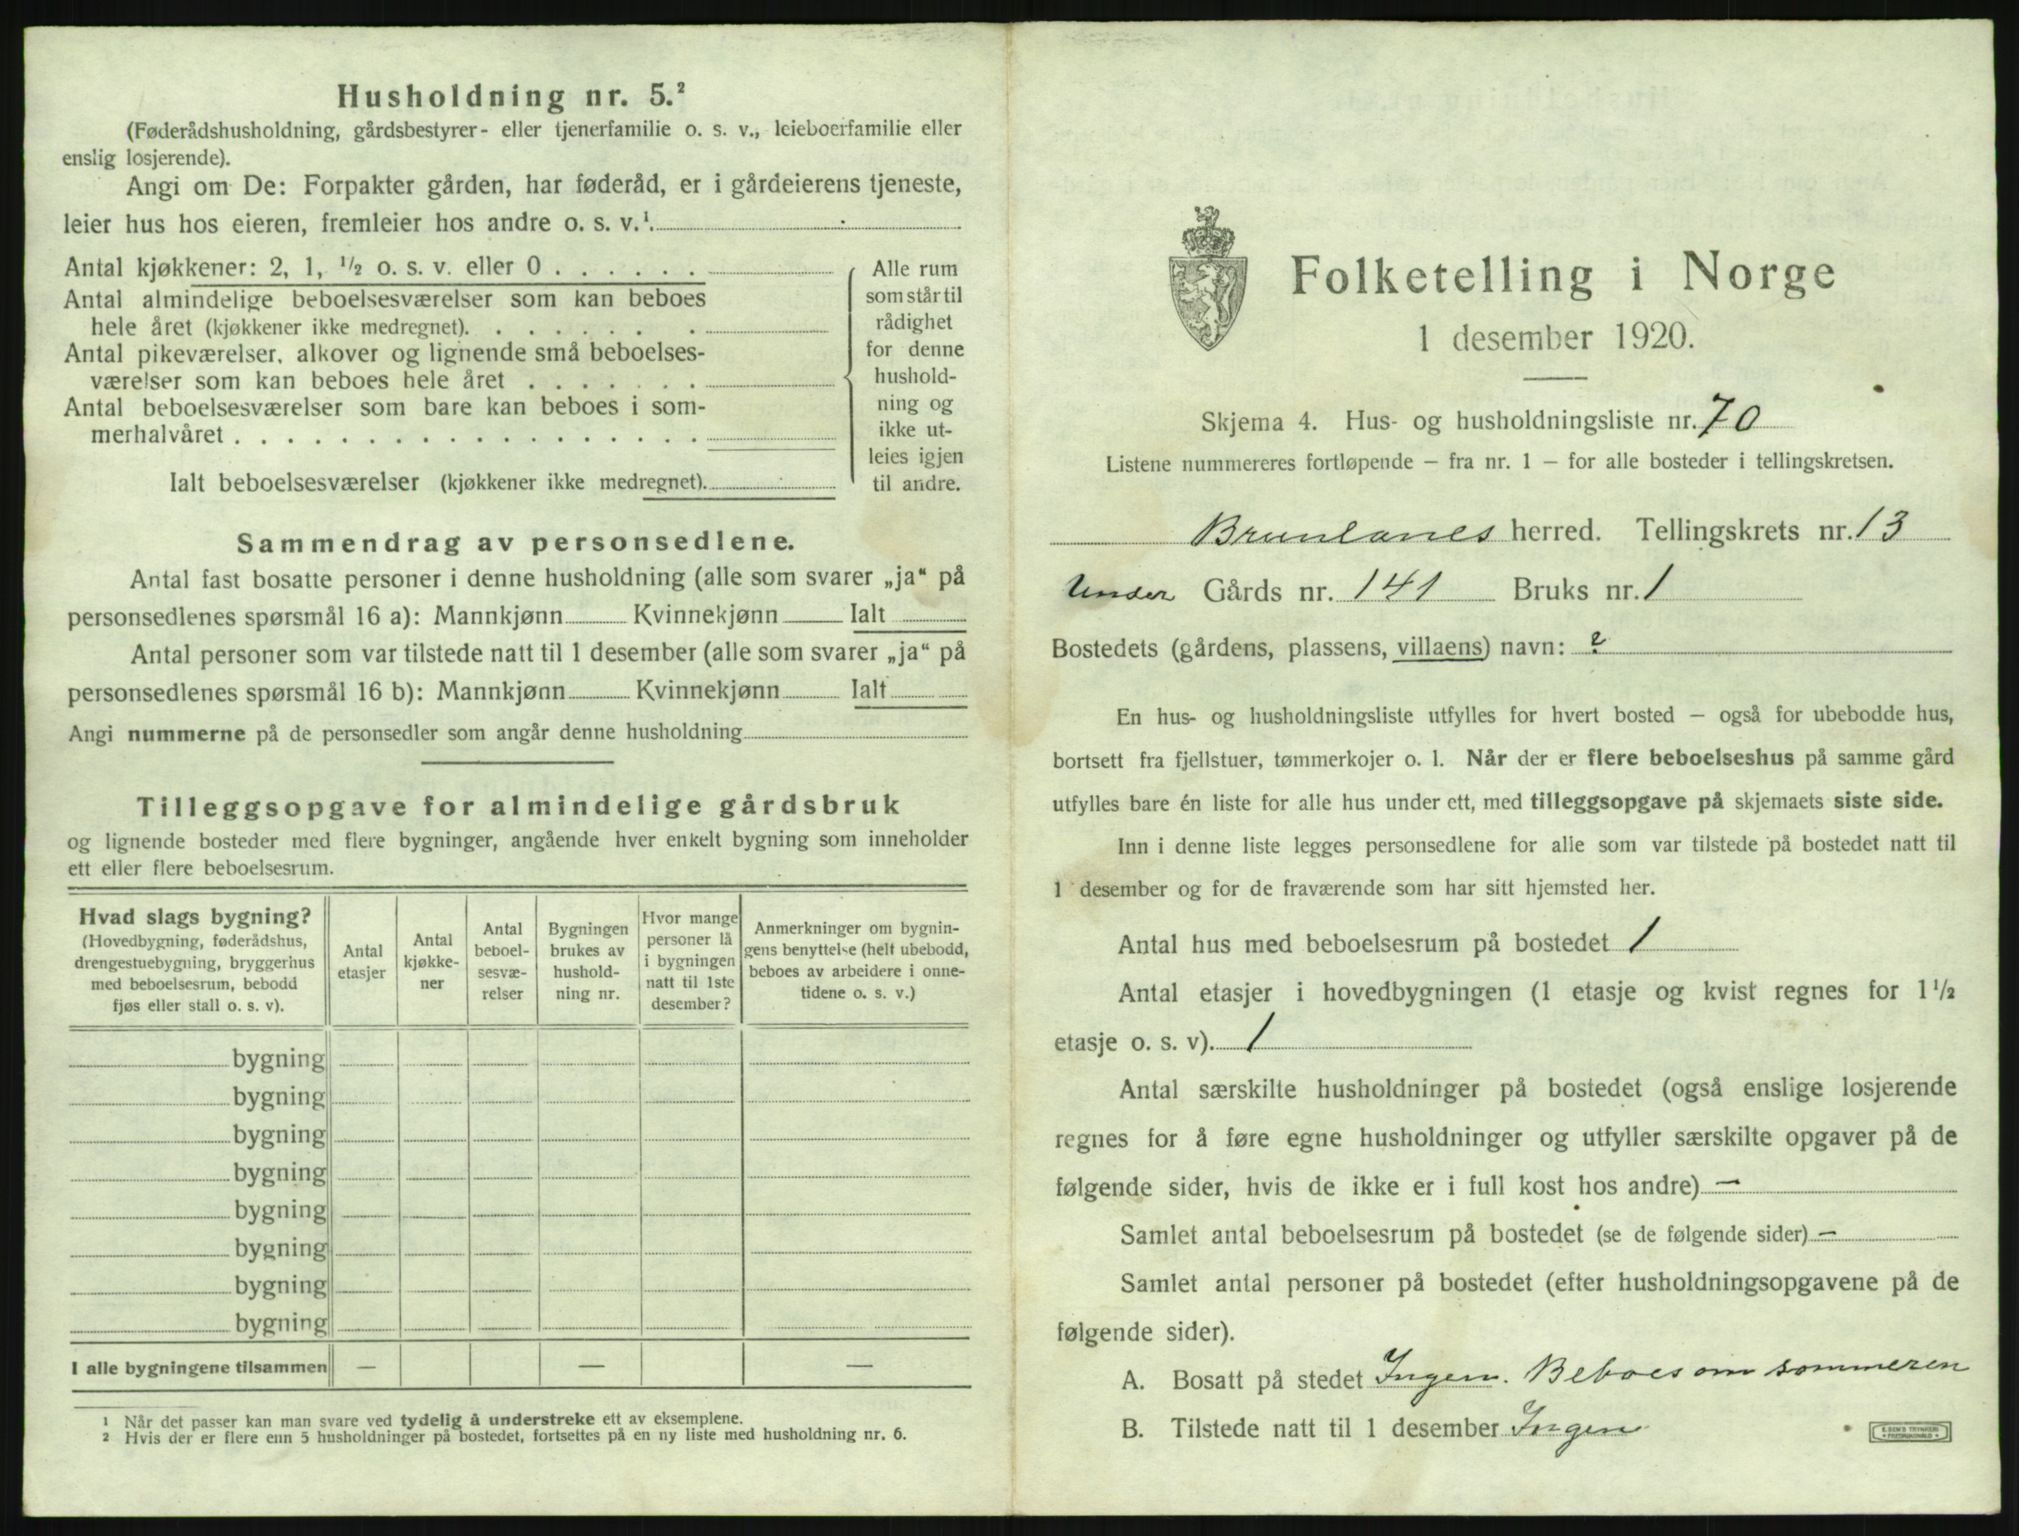 Husholdning nr. 5.²
(Føderådshusholdning, gårdsbestyrer- eller tjenerfamilie o. s. v., leieboerfamilie eller
enslig losjerende).
Angi om De: Forpakter gården, har føderåd, er i gårdeierens tjeneste,
leier hus hos eieren, fremleier hos andre o. s. v.¹
Antal kjøkkener: 2, 1, ½ o. s. v. eller 0 . . . . . .
Antal almindelige beboelsesværelser som kan beboes
hele året (kjøkkener ikke medregnet). . . . . . . .
Antal pikeværelser, alkover og lignende små beboelses-
værelser som kan beboes hele året . . . . . . .
Antal beboelsesværelser som bare kan beboes i som-
merhalvåret . . . . . . . . . . . . . . . . . .
Ialt beboelsesværelser (kjøkkener ikke medregnet).
Alle rum
som står til
rådighet
for denne
hushold-
ning og
ikke ut-
leies igjen
til andre.
Sammendrag av personsedlene.
Antal fast bosatte personer i denne husholdning (alle som svarer „ja“ på
personsedlenes spørsmål 16 a): Mannkjønn Kvinnekjønn Ialt
Antal personer som var tilstede natt til 1 desember (alle som svarer „ja“ på
personsedlenes spørsmål 16 b): Mannkjønn Kvinnekjønn Ialt
Angi nummerne på de personsedler som angår denne husholdning
Tilleggsopgave for almindelige gårdsbruk
og lignende bosteder med flere bygninger, angående hver enkelt bygning som inneholder
ett eller flere beboelsesrum.
Hvad slags bygning?
(Hovedbygning, føderådshus,
drengestuebygning, bryggerhus
med beboelsesrum, bebodd
fjøs eller stall o. s. v).
Antal
etasjer
Antal
kjøkke-
ner
Antal
beboel-
sesvæ-
relser
Bygningen
brukes av
hushold-
ning nr.
Hvor mange
personer lå
i bygningen
natt til 1ste
desember?
Anmerkninger om bygnin-
gens benyttelse (helt ubebodd,
beboes av arbeidere i onne-
tidene o. s. v.)
bygning
bygning
bygning
bygning
bygning
bygning
bygning
bygning
I alle bygningene tilsammen — — —
1 Når det passer kan man svare ved tydelig å understreke ett av eksemplene.
2 Hvis der er flere enn 5 husholdninger på bostedet, fortsettes på en ny liste med husholdning nr. 6.
Folketelling i Norge
1 desember 1920.
Skjema 4. Hus- og husholdningsliste nr. 70
Listene nummereres fortløpende – fra nr. 1 – for alle bosteder i tellingskretsen.
Brunlanes herred. Tellingskrets nr. 13
Under Gårds nr. 141 Bruks nr. 1
Bostedets (gårdens, plassens, villaens) navn: ?
En hus- og husholdningsliste utfylles for hvert bosted – også for ubebodde hus,
bortsett fra fjellstuer, tømmerkojer o. l. Når der er flere beboelseshus på samme gård
utfylles bare én liste for alle hus under ett, med tilleggsopgave på skjemaets siste side.
Inn i denne liste legges personsedlene for alle som var tilstede på bostedet natt til
1 desember og for de fraværende som har sitt hjemsted her.
Antal hus med beboelsesrum på bostedet 1
Antal etasjer i hovedbygningen (1 etasje og kvist regnes for 1½
etasje o. s. v). 1
Antal særskilte husholdninger på bostedet (også enslige losjerende
regnes for å føre egne husholdninger og utfyller særskilte opgaver på de
følgende sider, hvis de ikke er i full kost hos andre) –
Samlet antal beboelsesrum på bostedet (se de følgende sider) –
Samlet antal personer på bostedet (efter husholdningsopgavene på de
følgende sider).
A. Bosatt på stedet Ingen. Beboes om sommeren
B. Tilstede natt til 1 desember Ingen